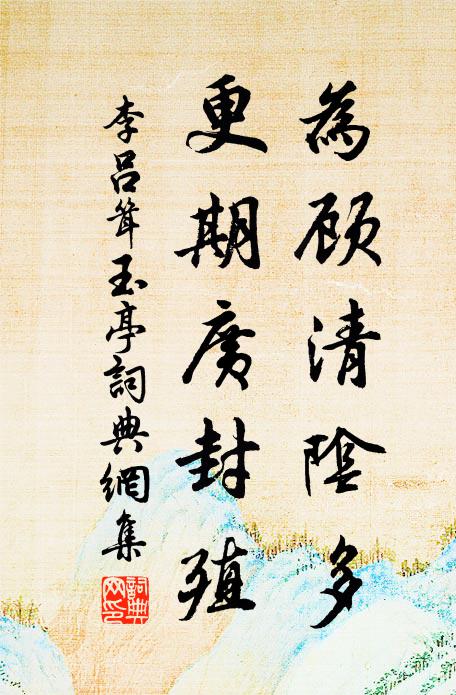 為顧清陰多
更期廣封殖
李呂耸玉亭詞典網集
詞典网印